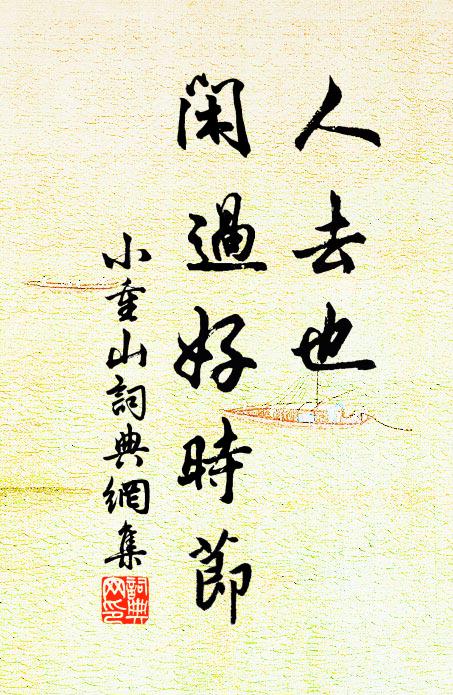 人去也
閑過好時節
小重山詞典網集
詞典網印